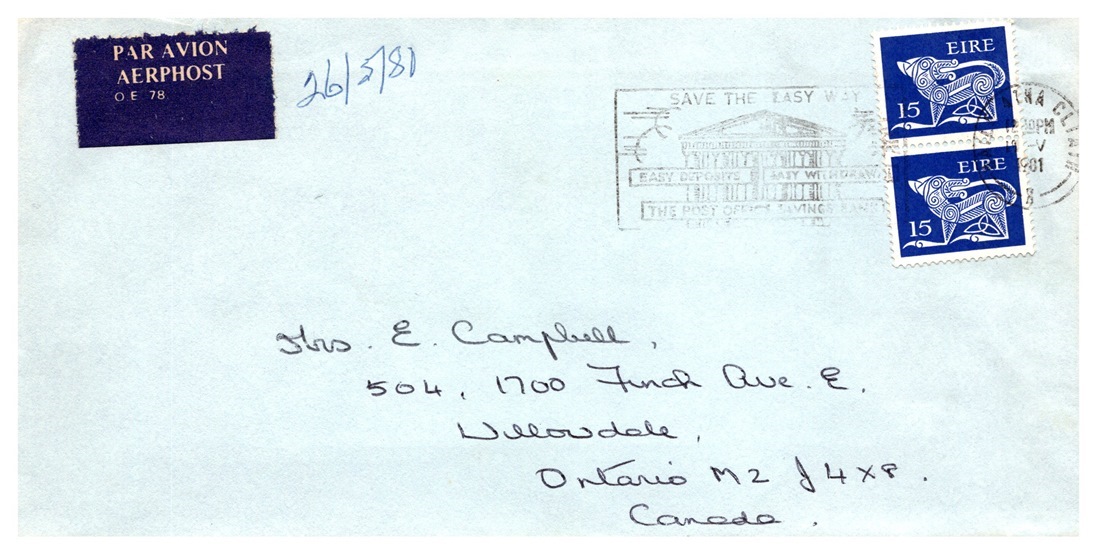 PAR AVION
AERPHOST
O E 78
26/5/81
SAVE THE EASY WAY
EASY DEPOSITS EASY WITHDRAWALS
THE POST OFFICE SAVINGS BANK
EIRE
15
EIRE
15
CLIATH
PM
V
1981
8
Mrs. E. Campbell,
504, 1700 Finch Ave. E.
Willowdale,
Ontario M2J4X8.
Canada.